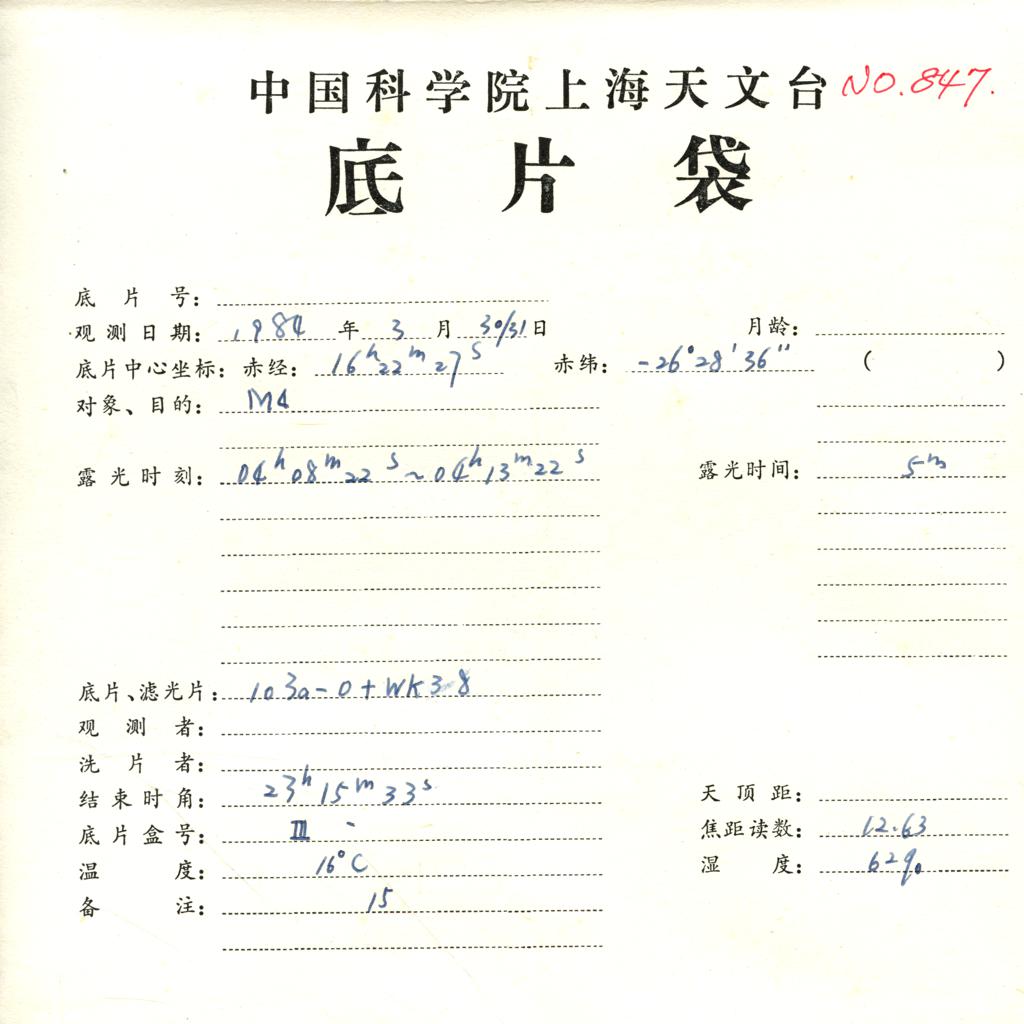 中国科学院上海天文台 NO.847.
底片袋
底片号:
观测日期: 1984 年 3 月 30/31 日 月龄:
底片中心坐标: 赤经: 16h22m27s 赤纬: -26°28'36" ( )
对象、目的: M4
露光时刻: 04h08m22s~04h13m22s 露光时间: 5m
底片、滤光片: 103a-O+WK38
观测者:
洗片者:
结束时角: 23h15m33s 天顶距:
底片盒号: III - 焦距读数: 12.63
温度: 16°C 湿度: 62%
备注: 15